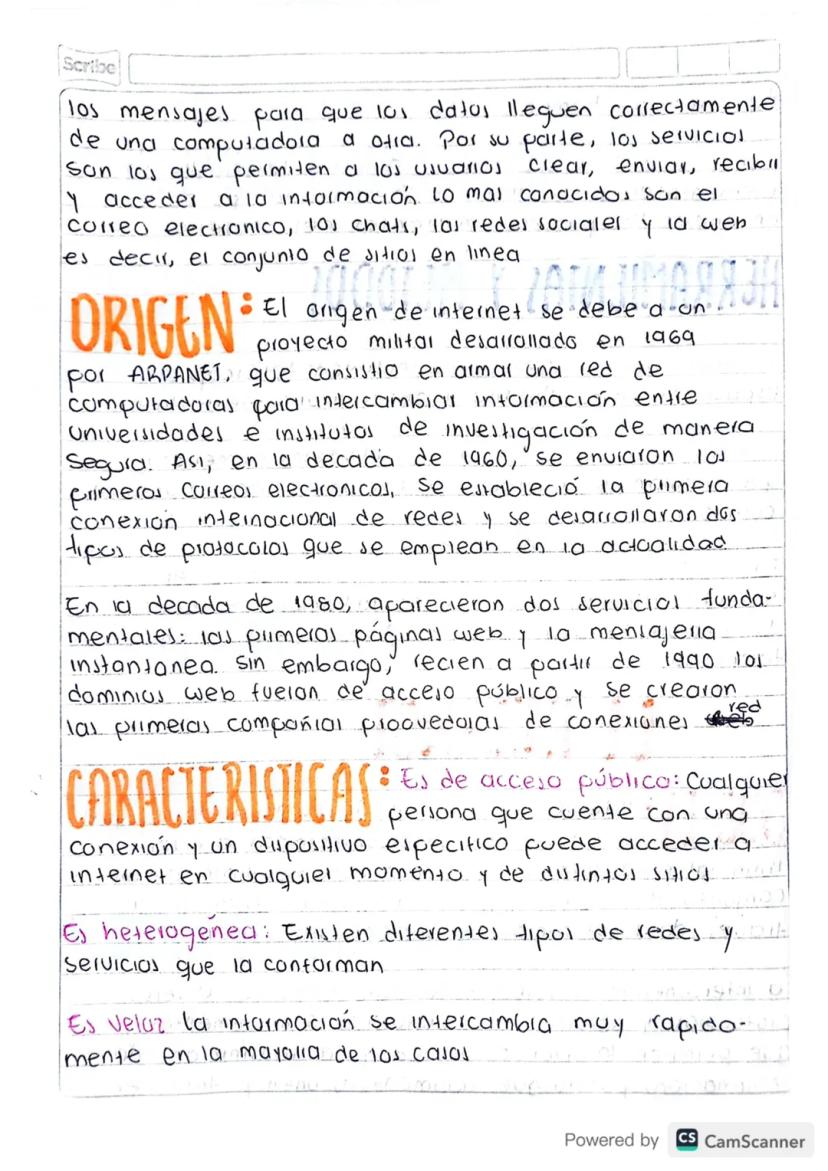 Scribe
los mensajes para que los datos lleguen correctamente
de una computadora a otra. Por su parte, los servicios
son los que permiten a los usuarios crear, enviar, recibir
y acceder a la información lo mas conocidos son el
correo electronico, los chats, las redes sociales y la web
es decir, el conjunto de sitios en linea
HERRAMIENTAS Y METODOS
ORIGEN: El origen de internet se debe a un
proyecto militar desarrollado en 1969
por ARPANET, que consistio en armar una red de
computadoras para intercambiar información entre
universidades e institutos de investigación de manera
segura. Asi, en la decada de 1960, se enviaron los
primeros correos electronicos, se estableció la primera
conexion internacional de redes y se desarrollaron dos
tipos de protocolos que se emplean en la actualidad
En la decada de 1980, aparecieron dos servicios funda-
mentales: las primeras páginas web y la mensajeria
instantanea. Sin embargo, recien a partir de 1990 los
dominios web fueron de acceso público y se crearon
las primeras compañias proovedoras de conexiones red
CARACTERISTICAS: Es de acceso público: Cualquier
persona que cuente con una
conexión y un dispositivo especifico puede acceder a
internet en cualquier momento y de distintos sitios
Es heterogénea: Existen diferentes tipos de redes y
servicios que la conforman
Es veloz la información se intercambia muy rapida-
mente en la mayoria de los casos
Powered by CS CamScanner